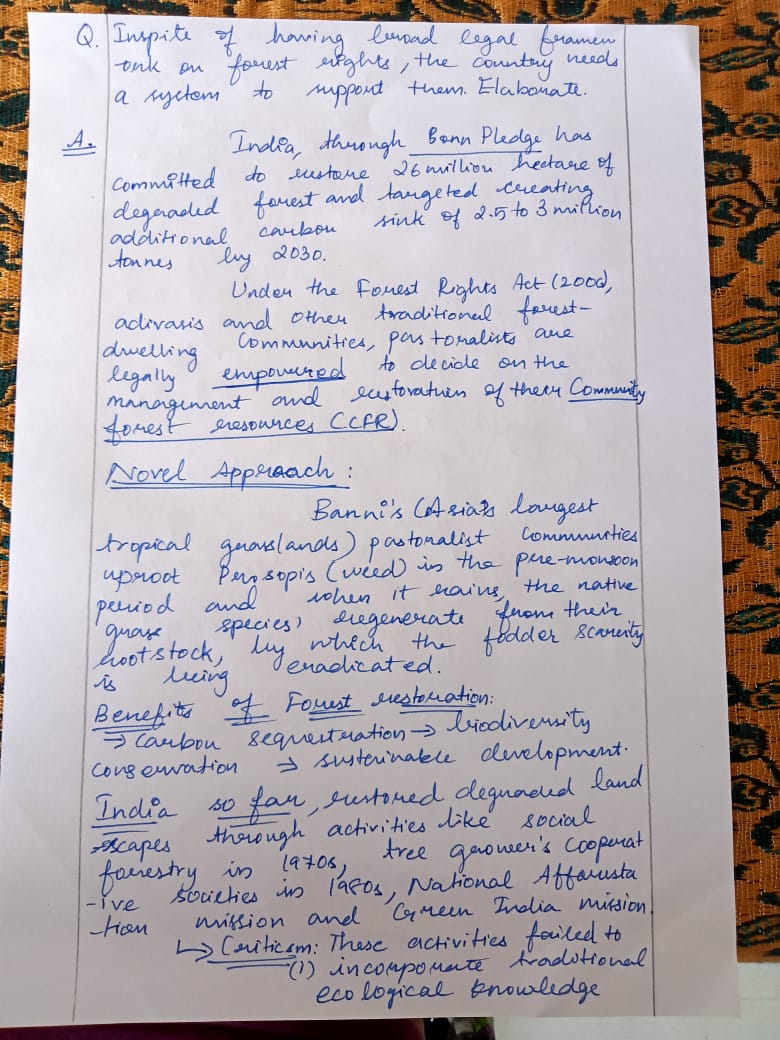 Q. Inspite of having broad legal framew
-ork on forest rights, the country needs
a system to support them. Elaborate.
A. India, through Bonn Pledge has
committed to restore 26 million hectare of
degraded forest and targeted creating
additional carbon sink of 2.5 to 3 million
tonnes by 2030.
Under the Forest Rights Act (2006),
adivasis and other traditional forest-
dwelling communities, pastoralists are
legally empowered to decide on the
management and restoration of their Community
forest resources (CFR).
Novel Approach :
Banni's (Asia's largest
tropical grasslands) pastoralist communities
uproot Perosopis (weed) in the pre-monsoon
period and when it rains, the native
grass species, regenerate from their
rootstock, by which the fodder scarcity
is being eradicated.
Benefits of Forest restoration:
→ Carbon sequestration → biodiversity
conservation → susteinable development.
India so far, restored degraded land
scapes through activities like social
forestry in 1970s, tree grower's cooperat
-ive societies in 1980s, National Afforesta
-tion mission and Green India mission.
↳ Criticism: These activities failed to
(i) incorporate traditional
ecological knowledge